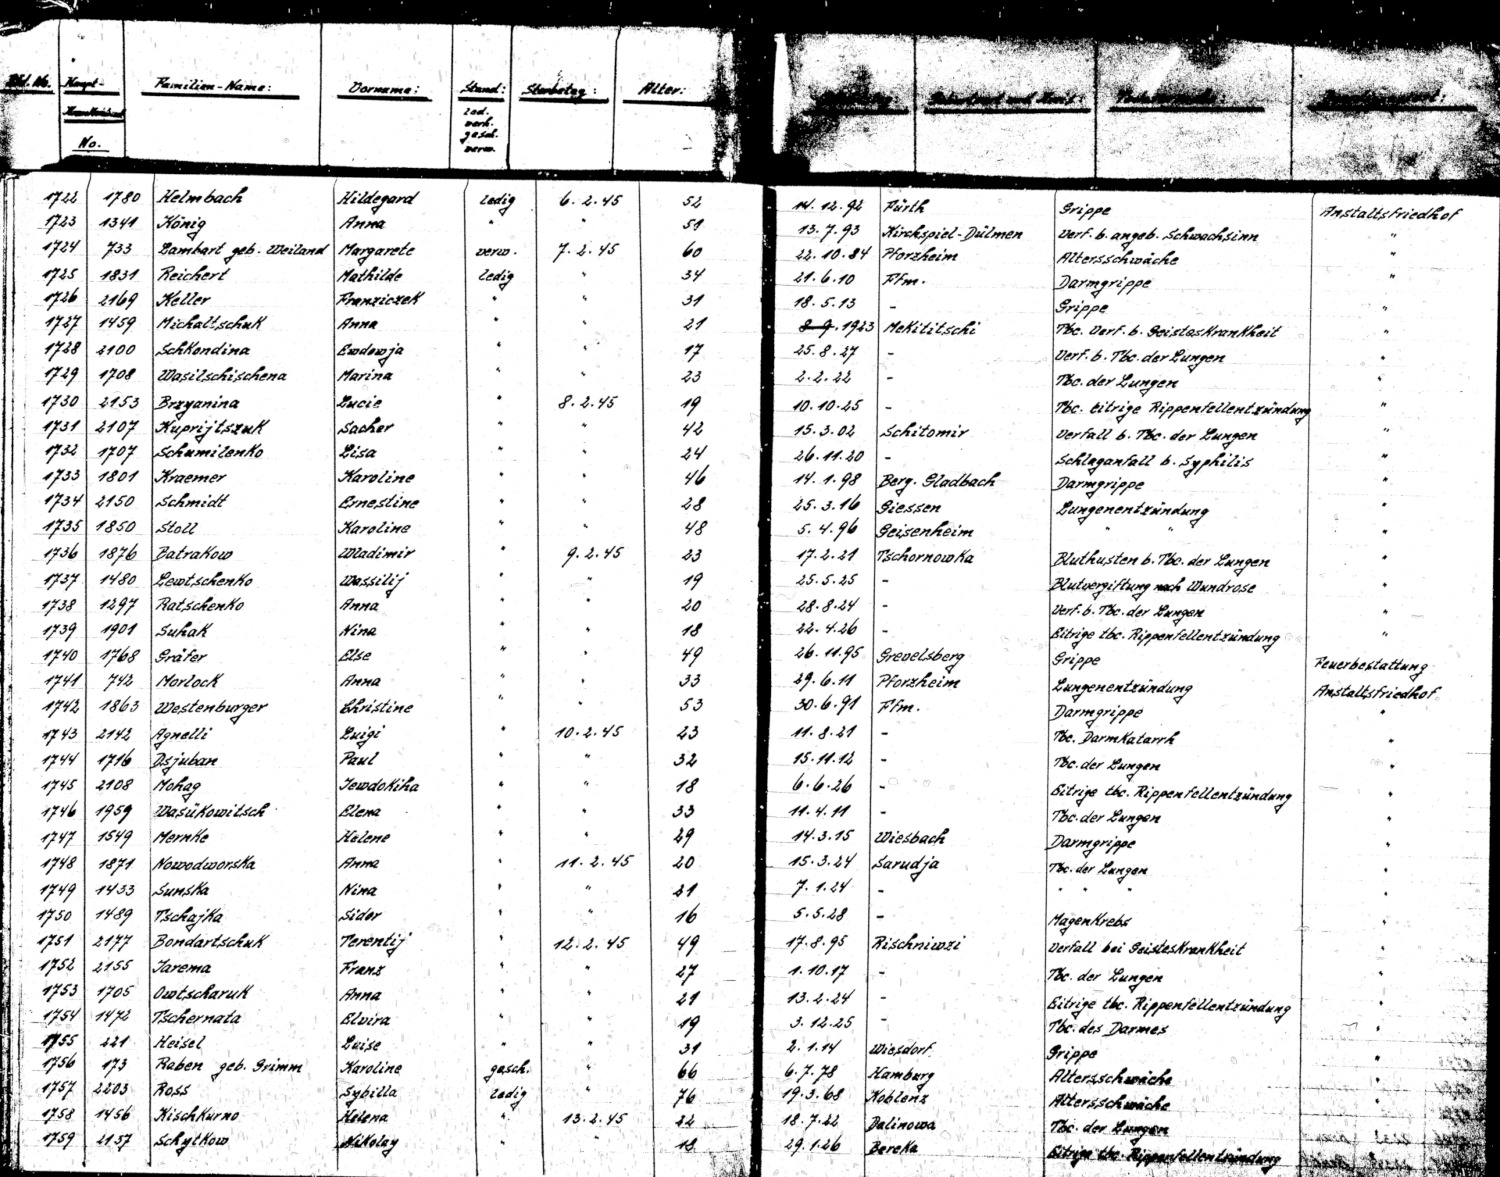 Lfd. No. Haupt- Familien-Name: Vorname: Stand: Sterbetag: Alter:
No. led. verh. gesch. verw.
1722 1780 Helmbach Hildegard ledig 6.2.45 52 14.12.92 Fürth Grippe Anstaltsfriedhof
1723 1341 König Anna " " 51 13.7.93 Kirchspiel-Dülmen Verf. b. angeb. Schwachsinn "
1724 733 Lambart geb. Weiland Margarete verw. 7.2.45 60 22.10.84 Pforzheim Altersschwäche "
1725 1831 Reichert Mathilde ledig " 34 21.6.10 Ffm. Darmgrippe "
1726 2169 Keller Franziczek " " 31 18.5.13 – Grippe "
1727 1459 Michaltschuk Anna " " 21 1923 Mekititschi Tbc. Verf. b. Geisteskrankheit "
1728 2100 Schkondina Ewdowja " " 17 25.8.27 – Verf. b. Tbc. der Lungen "
1729 1708 Wasilschischena Marina " " 23 2.2.22 – Tbc. der Lungen "
1730 2153 Brzyanina Lucie " 8.2.45 19 10.10.25 – Tbc. eitrige Rippenfellentzündung "
1731 2107 Kuprijtszuk Sacher " " 42 15.3.02 Schitomir Verfall b. Tbc. der Lungen "
1732 1707 Schumilenko Lisa " " 24 26.11.20 – Schlaganfall b. Syphilis "
1733 1801 Kraemer Karoline " " 46 14.1.98 Berg. Gladbach Darmgrippe "
1734 2150 Schmidt Ernestine " " 28 25.3.16 Giessen Lungenentzündung "
1735 1850 Stoll Karoline " " 48 5.4.96 Geisenheim " " "
1736 1876 Batrakow Wladimir " 9.2.45 23 17.2.21 Tschornowka Bluthusten b. Tbc. der Lungen "
1737 1480 Lewtschenko Wassilij " " 19 25.5.25 – Blutvergiftung nach Wundrose "
1738 1297 Ratschenko Anna " " 20 28.8.24 – Verf. b. Tbc. der Lungen "
1739 1901 Suhak Nina " " 18 22.4.26 – Eitrige tbc. Rippenfellentzündung "
1740 1768 Gräfer Else " " 49 26.11.95 Grevelsberg Grippe Feuerbestattung
1741 742 Morlock Anna " " 33 29.6.11 Pforzheim Lungenentzündung Anstaltsfriedhof
1742 1863 Westenburger Christine " " 53 30.6.91 Ffm. Darmgrippe "
1743 2142 Agnelli Luigi " 10.2.45 23 11.8.21 – Tbc. Darmkatarrh "
1744 1716 Dsjuban Paul " " 32 15.11.12 – Tbc. der Lungen "
1745 2108 Mohag Jewdokiha " " 18 6.6.26 – Eitrige tbc. Rippenfellentzündung "
1746 1959 Wasükowitsch Elena " " 33 11.4.11 – Tbc. der Lungen "
1747 1549 Mernke Helene " " 29 14.3.15 Wiesbach Darmgrippe "
1748 1871 Nowodworska Anna " 11.2.45 20 15.3.24 Sarudja Tbc. der Lungen "
1749 1433 Sunska Nina " " 21 7.1.24 – " " " "
1750 1489 Tschajka Sidor " " 16 5.5.28 – Magenkrebs "
1751 2177 Bondartschuk Terentij " 12.2.45 49 17.8.95 Rischniwzi Verfall bei Geisteskrankheit "
1752 2155 Jarema Franz " " 27 1.10.17 – Tbc. der Lungen "
1753 1705 Owtscharuk Anna " " 21 13.2.24 – Eitrige tbc. Rippenfellentzündung "
1754 1472 Tschernata Elvira " " 19 3.12.25 – Tbc. des Darmes "
1755 221 Heisel Luise " " 31 2.1.14 Wiesdorf Grippe "
1756 173 Raben geb. Grimm Karoline gesch. " 66 6.7.78 Hamburg Altersschwäche "
1757 2203 Ross Sybilla ledig " 76 19.3.68 Koblenz Altersschwäche "
1758 1456 Kischkurno Helena " 13.2.45 22 18.7.22 Dalinowa Tbc. der Lungen "
1759 2157 Schytkow Nikolay " " 18 29.1.26 Bereka Eitrige tbc. Rippenfellentzündung